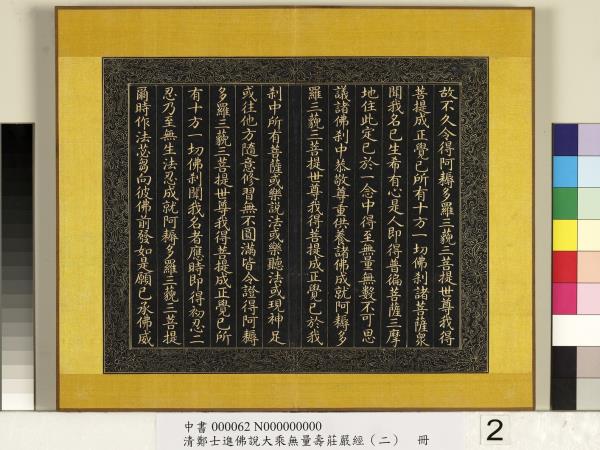 故不久令得阿耨多羅三藐三菩提世尊我得
菩提成正覺已所有十方一切佛刹諸菩薩衆
聞我名已生希有心是人即得普徧菩薩三摩
地住此定已於一念中得至無量無數不可思
議諸佛刹中恭敬尊重供養諸佛成就阿耨多
羅三藐三菩提世尊我得菩提成正覺已於我
刹中所有菩薩或樂說法或樂聽法或現神足
或往他方隨意修習無不圓滿皆令證得阿耨
多羅三藐三菩提世尊我得菩提成正覺已所
有十方一切佛刹聞我名者應時即得初忍二
忍乃至無生法忍成就阿耨多羅三藐三菩提
爾時作法苾芻向彼佛前發如是願已承佛威
中書 000062 N000000000
清鄭士進佛說大乘無量壽莊嚴經（二） 冊
2